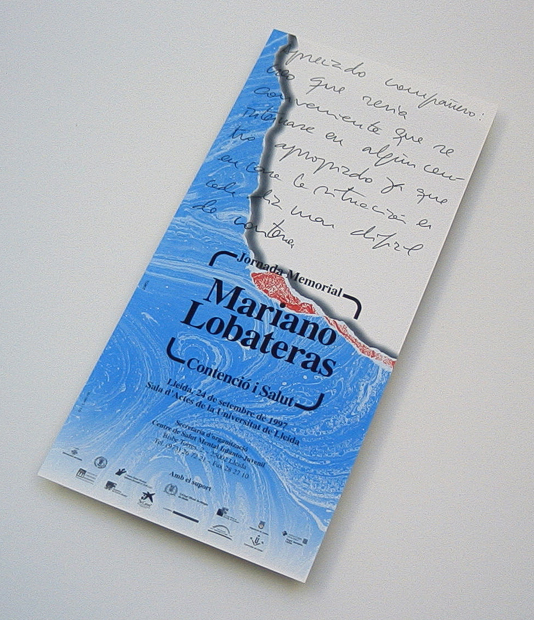 apreciado compañero:
creo que seria
conveniente que se
situase en algún cen-
tro apropiado ya que
en casa la situación es
cada vez mas difícil
de sostener
Jornada Memorial
Mariano
Lobateras
Contenció i Salut
Lleida, 24 de setembre de 1997
Sala d'Actes de la Universitat de Lleida
Secretaria d'organització
Centre de Salut Mental Infanto-Juvenil
Lleida
Amb el suport